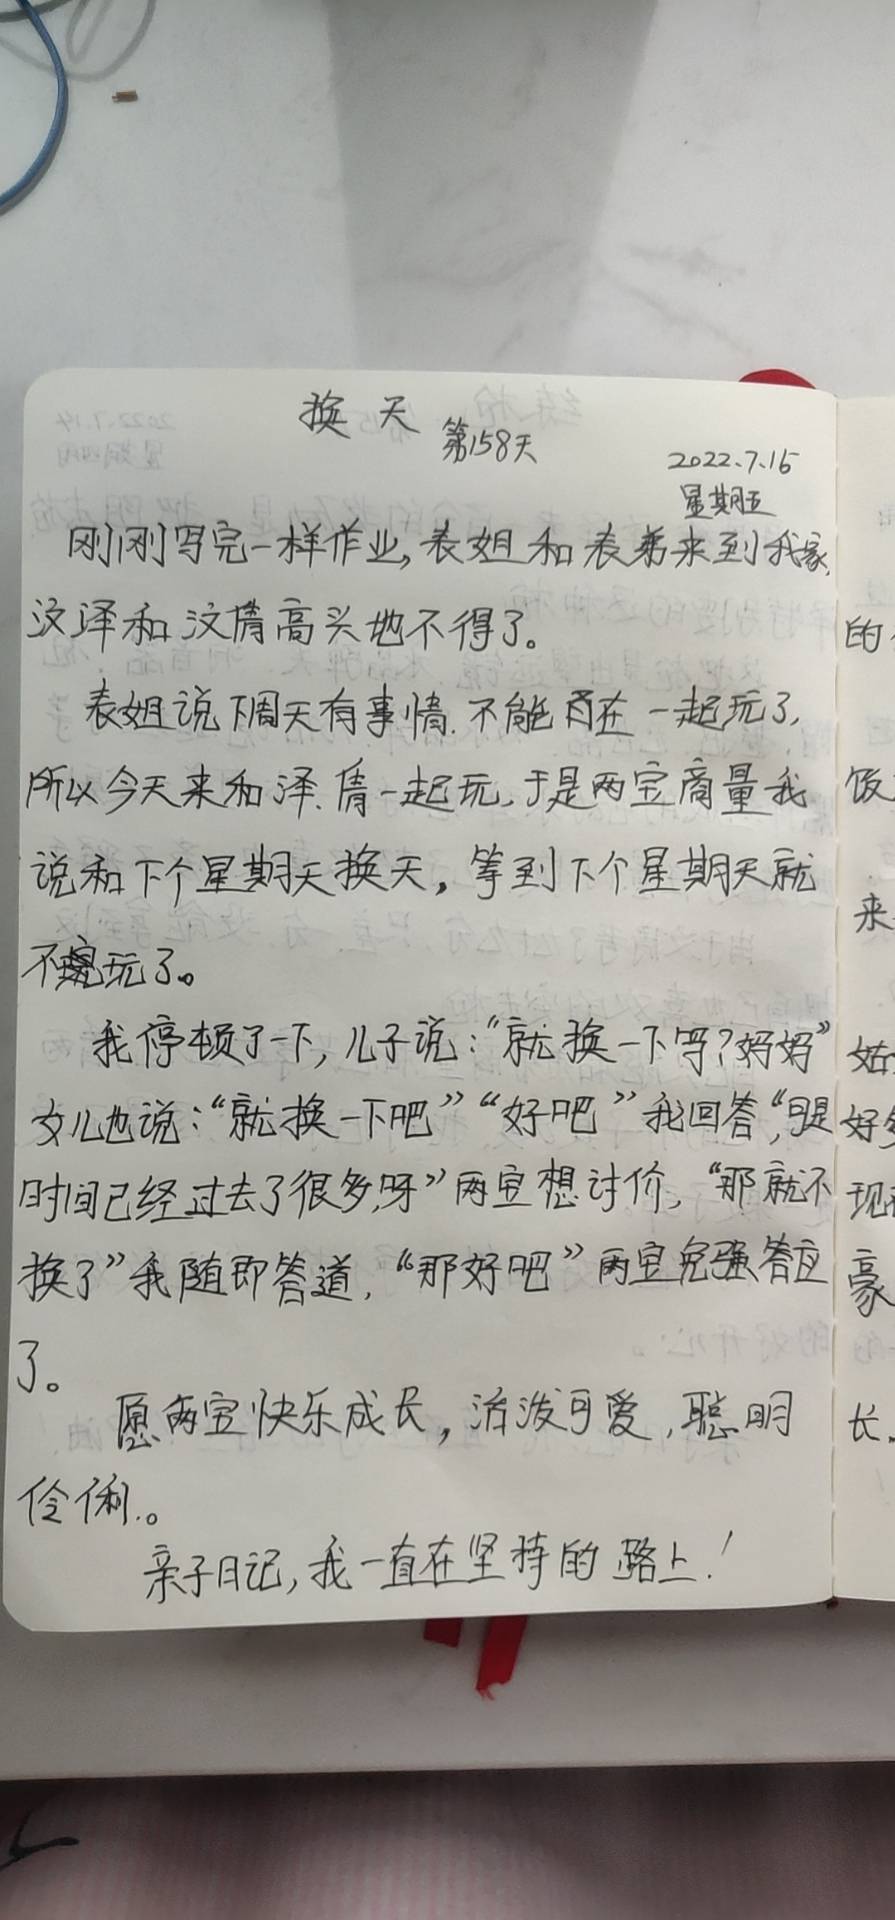 换天
第158天
2022.7.15
星期五
刚刚写完一样作业,表姐和表弟来到我家,
汶泽和汶倩高兴地不得了。
表姐说下周天有事情.不能在一起玩了,
所以今天来和泽.倩一起玩,于是两宝商量我
说和下个星期天换天,等到下个星期天就
不玩了。
我停顿了一下,儿子说:“就换一下吗?妈妈”
女儿也说:“就换一下吧”“好吧”我回答,“可是
时间已经过去了很多,呀”两宝想讨价,“那就不
换了”我随即答道,“那好吧”两宝免强答应
了。
愿两宝快乐成长,活泼可爱,聪明
伶俐.。
亲子日记,我一直在坚持的路上!
的
饭
来
好
现
豪
长.